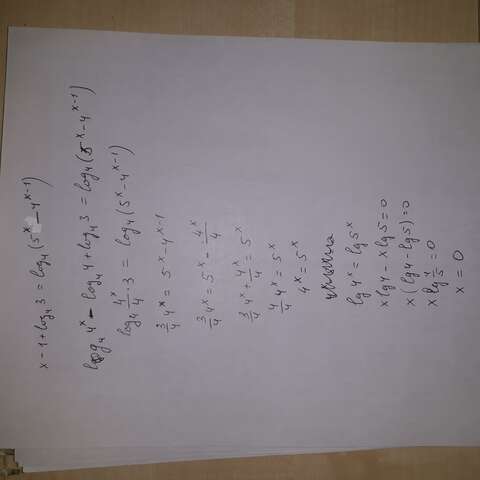 x-1+log₄3 = log₄(5ˣ-4ˣ⁻¹)
log₄4ˣ - log₄4 + log₄3 = log₄(5ˣ-4ˣ⁻¹)
log₄ 4ˣ/4 · 3 = log₄(5ˣ-4ˣ⁻¹)
3/4 4ˣ = 5ˣ-4ˣ⁻¹
3/4 4ˣ = 5ˣ - 4ˣ/4
3/4 4ˣ + 4ˣ/4 = 5ˣ
4/4 4ˣ = 5ˣ
4ˣ = 5ˣ
lg 4ˣ = lg 5ˣ
x lg 4 - x lg 5 = 0
x (lg 4 - lg 5) = 0
x lg 4/5 = 0
x = 0